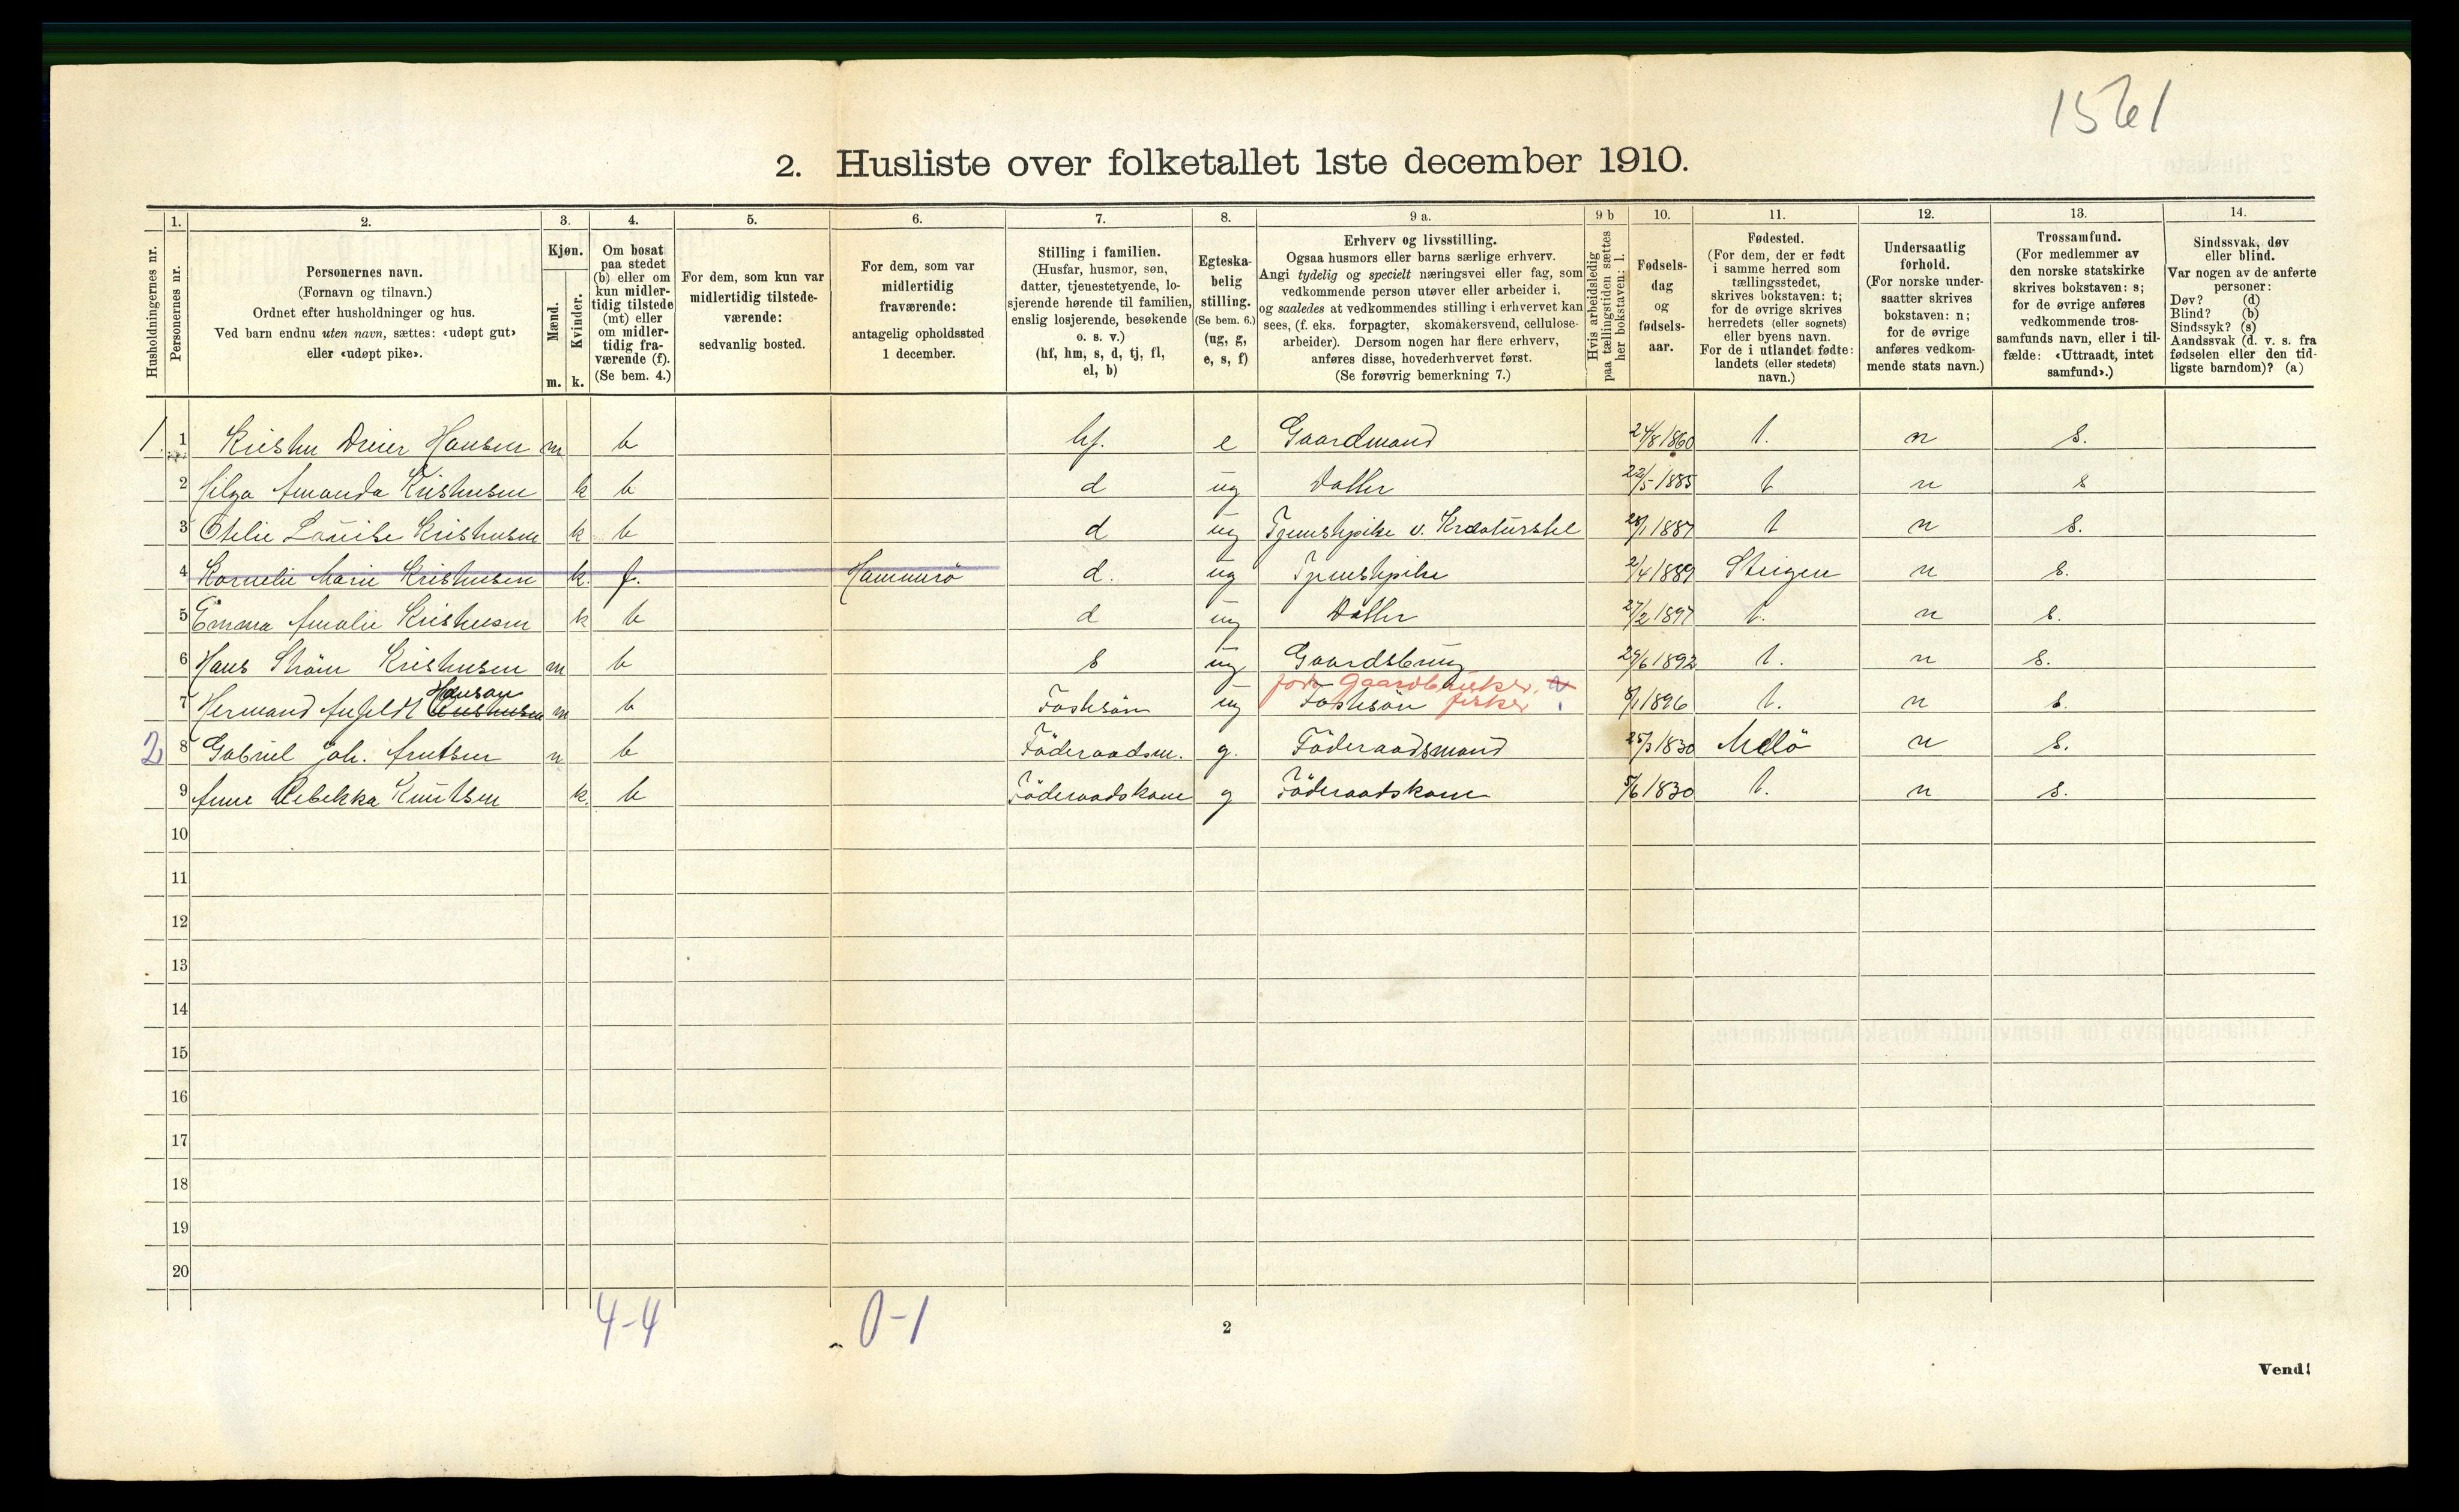 1561
2. Husliste over folketallet 1ste december 1910.
1. 2. 3. 4. 5. 6. 7. 8. 9 a. 9 b 10. 11. 12. 13. 14.
Husholdningernes nr.
Personernes nr.
Personernes navn.
(Fornavn og tilnavn.)
Ordnet efter husholdninger og hus.
Ved barn endnu uten navn, sættes: «udøpt gut»
eller «udøpt pike».
Kjøn.
Mænd.
Kvinder.
m. k.
Om bosat
paa stedet
(b) eller om
kun midler-
tidig tilstede
(mt) eller
om midler-
tidig fra-
værende (f).
(Se bem. 4.)
For dem, som kun var
midlertidig tilstede-
værende:
sedvanlig bosted.
For dem, som var
midlertidig
fraværende:
antagelig opholdssted
1 december.
Stilling i familien.
(Husfar, husmor, søn,
datter, tjenestetyende, lo-
sjerende hørende til familien,
enslig losjerende, besøkende
o. s. v.)
(hf, hm, s, d, tj, fl,
el, b)
Egteska-
belig
stilling.
(Se bem. 6.)
(ug, g,
e, s, f)
Erhverv og livsstilling.
Ogsaa husmors eller barns særlige erhverv.
Angi tydelig og specielt næringsvei eller fag, som
vedkommende person utøver eller arbeider i,
og saaledes at vedkommendes stilling i erhvervet kan
sees, (f. eks. forpagter, skomakersvend, cellulose-
arbeider). Dersom nogen har flere erhverv,
anføres disse, hovederhvervet først.
(Se forøvrig bemerkning 7.)
Hvis arbeidsledig
paa tællingstiden sættes
her bokstaven: l.
Fødsels-
dag
og
fødsels-
aar.
Fødested.
(For dem, der er født
i samme herred som
tællingsstedet,
skrives bokstaven: t;
for de øvrige skrives
herredets (eller sognets)
eller byens navn.
For de i utlandet fødte:
landets (eller stedets)
navn.)
Undersaatlig
forhold.
(For norske under-
saatter skrives
bokstaven: n;
for de øvrige
anføres vedkom-
mende stats navn.)
Trossamfund.
(For medlemmer av
den norske statskirke
skrives bokstaven: s;
for de øvrige anføres
vedkommende tros-
samfunds navn, eller i til-
fælde: «Uttraadt, intet
samfund».)
Sindssvak, døv
eller blind.
Var nogen av de anførte
personer:
Døv? (d)
Blind? (b)
Sindssyk? (s)
Aandssvak (d. v. s. fra
fødselen eller den tid-
ligste barndom)? (a)
1. 1 Hansen m b hf. e Gaardmand 24/8 1860 t. n s.
2 Amanda Kristensen k b d ug Datter 22/5 1885 t n s
3 Louise Kristensen k b d ug Tjenstepike v. Kreaturstel 1887 t n s.
4 Kornelie Marie Kristensen k. f. Hammerö d. ug Tjenstepike 2/4 1889 Steigen n s.
5 Emma Amalie Kristensen k b d ug Datter 27/2 1897 t. n s.
6 Hans Ström Kristensen m b s ug 29/6 1892 t. n s.
Hansen Gaardbruker.
7 Hermand Kristensen m b Fostersön ug Fostersön fisker 1896 t. n s.
2 8 Gabriel Joh. m b Föderaadsm. g. Föderaadsmand 25/3 1830 n s.
9 Anne Rebekka Knutsen k. b Föderaadskone g Föderaadskone 5/6 1830 t. n s.
10
11
12
13
14
15
16
17
18
19
20
4-4 0-1
2
Vend!